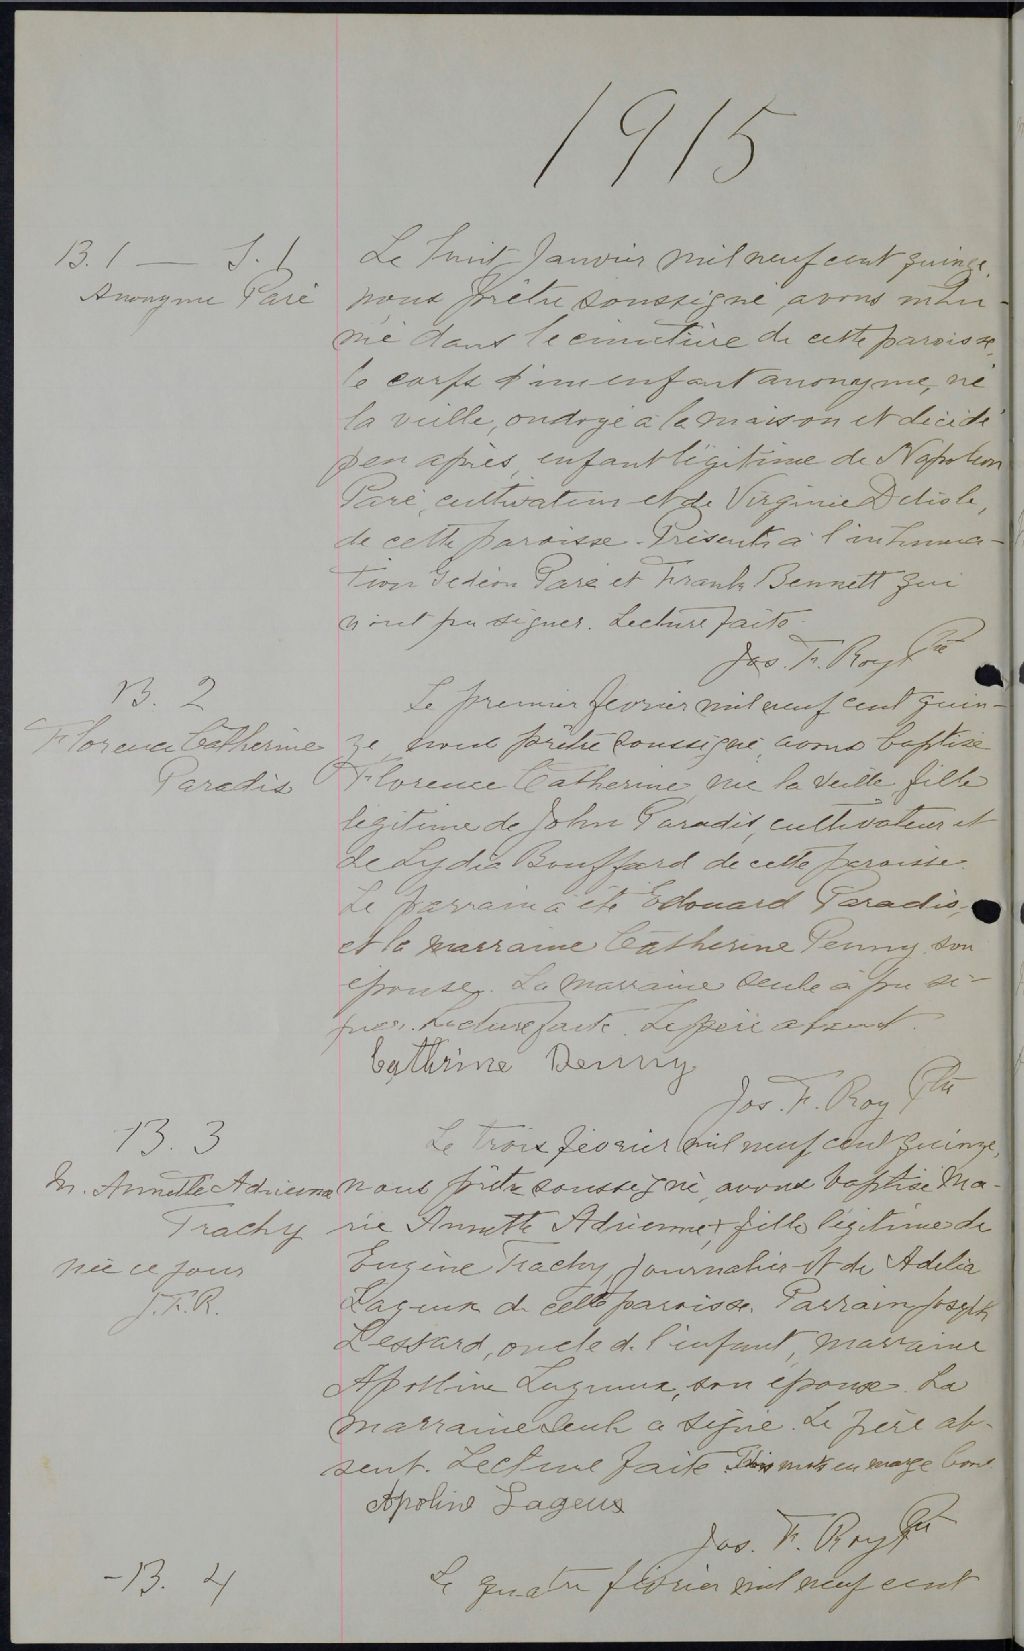 1915
B. 1 — S. 1
Anonyme Paré
Le huit Janvier mil neuf cent quinze,
nous prêtre soussigné, avons inhu-
mé dans le cimetière de cette paroisse,
le corps d'un enfant anonyme, né
la veille, ondoyé à la maison et décédé
peu après, enfant légitime de Napoléon
Paré, cultivateur et de Virginie Delisle,
de cette paroisse. Présents à l'inhuma-
tion Gédéon Paré et Frank Bennett qui
n'ont pu signer. Lecture faite.
Jos. F. Roy Ptre
B. 2
Florence Catherine
Paradis
Le premier février mil neuf cent quin-
ze, nous prêtre soussigné, avons baptisé
Florence Catherine, née la veille, fille
légitime de John Paradis, cultivateur et
de Lydia Bouffard de cette paroisse.
Le parrain a été Edouard Paradis,
et la marraine Catherine Penny son
épouse. La marraine seule a pu si-
gner. Lecture faite. Le père absent.
Cathrine Denny
Jos. F. Roy Ptre
B. 3
M. Annette Adrienne
Trachy
née ce jour
J.F.R.
Le trois février mil neuf cent quinze,
nous prêtre soussigné, avons baptisé Ma-
rie Annette Adrienne, + fille légitime de
Eugène Trachy, journalier et de Adélia
Lageux de cette paroisse. Parrain Joseph
Lessard, oncle de l'enfant, marraine
Apolline Lagueux, son épouse. La
marraine seule a signé. Le père ab-
sent. Lecture faite. Trois mots en marge bons
Apoline Lageux
Jos. F. Roy Ptre
B. 4
Le quatre février mil neuf cent